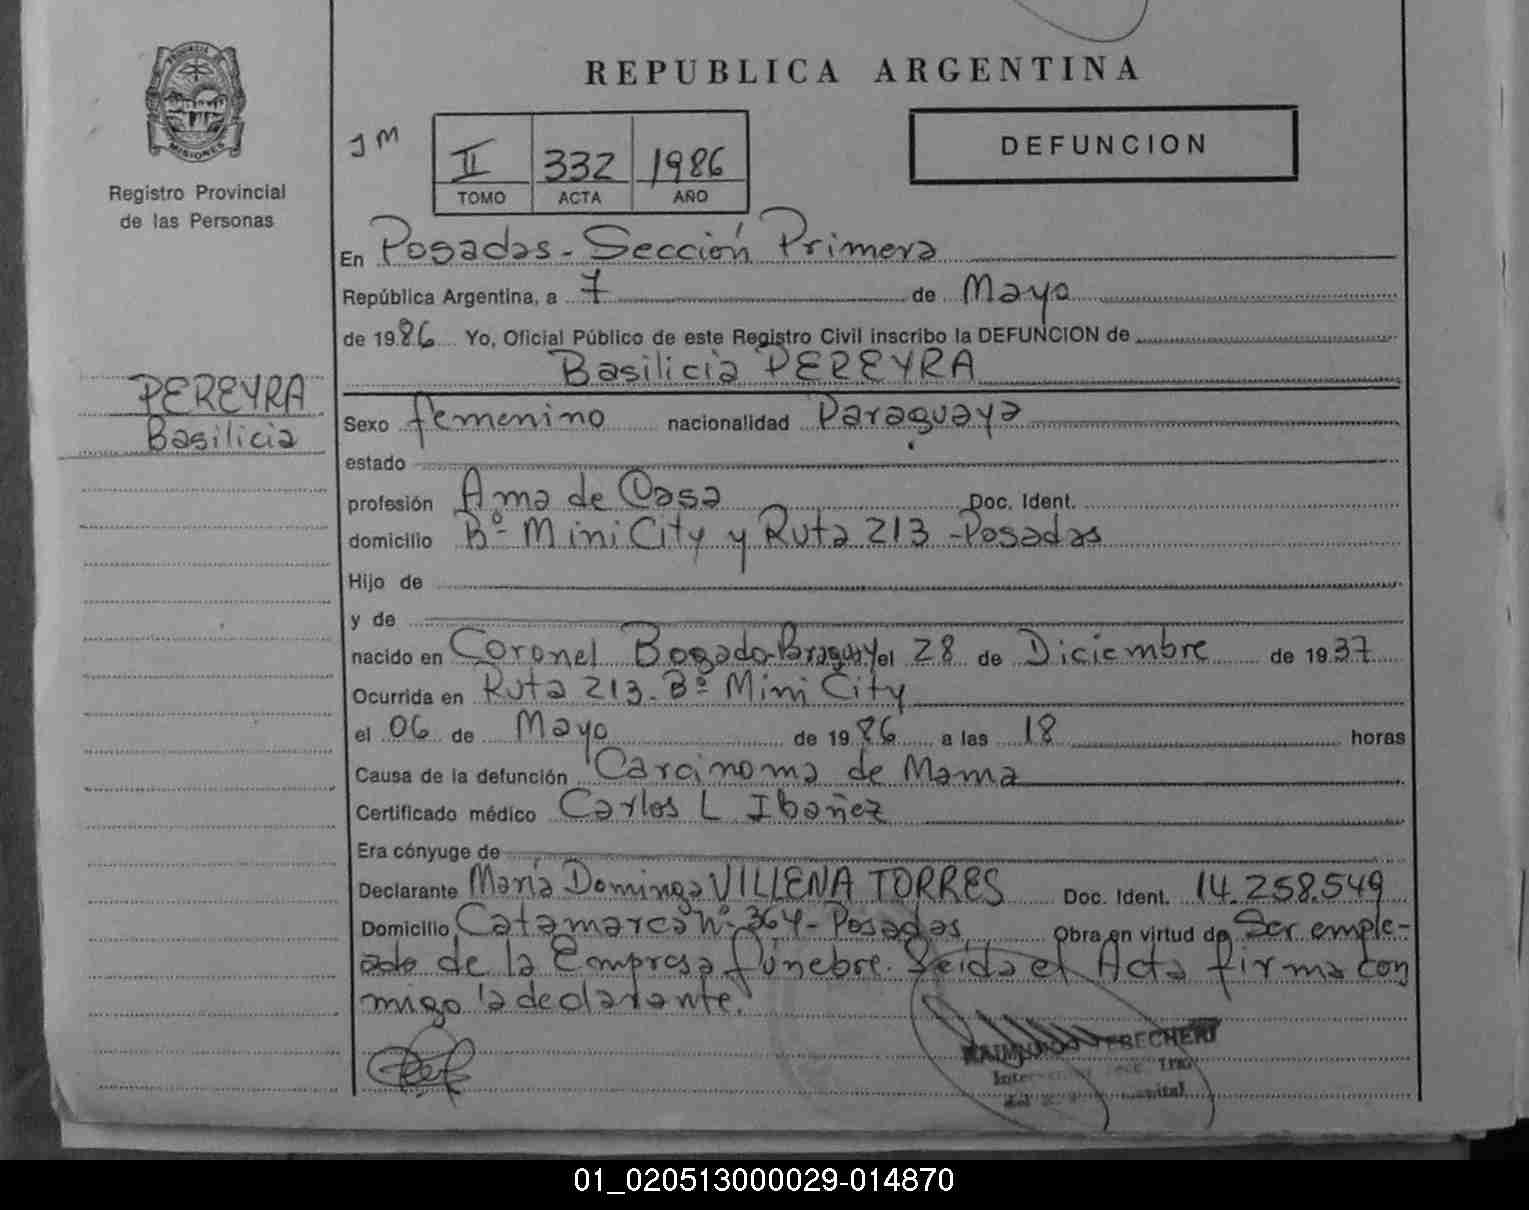 REPUBLICA ARGENTINA
PROVINCIA
MISIONES
Registro Provincial
de las Personas
J M
II 332 1986
TOMO ACTA AÑO
DEFUNCION
En Posadas - Sección Primera
República Argentina, a 7 de Mayo
de 1986 Yo, Oficial Público de este Registro Civil inscribo la DEFUNCION de
Basilicia PEREYRA
PEREYRA
Basilicia
Sexo femenino nacionalidad Paraguaya
estado
profesión Ama de Casa Doc. Ident.
domicilio Bº Mini City y Ruta 213 - Posadas
Hijo de
y de
nacido en Coronel Bogado - Praguay el 28 de Diciembre de 1937
Ocurrida en Ruta 213 - Bº Mini City
el 06 de Mayo de 1986 a las 18 horas
Causa de la defunción Carcinoma de Mama
Certificado médico Carlos L Ibañez
Era cónyuge de
Declarante María Dominga VILLENA TORRES Doc. Ident. 14.258.549
Domicilio Catamarca Nº 364 - Posadas Obra en virtud de Ser emple-
ado de la Empresa fúnebre. Leida el Acta firma con
migo la declarante.
01_020513000029-014870